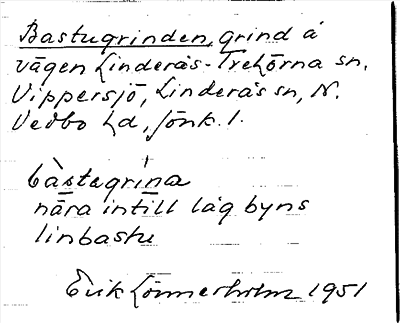 Bastugrinden, grind å
vägen Linderås-Trehörna sn.
Vippersjö, Linderås sn, N.
Vedbo hd, Jönk. l.
bàstagrína
nära intill låg byns
linbastu
Erik Lönnerholm 1951